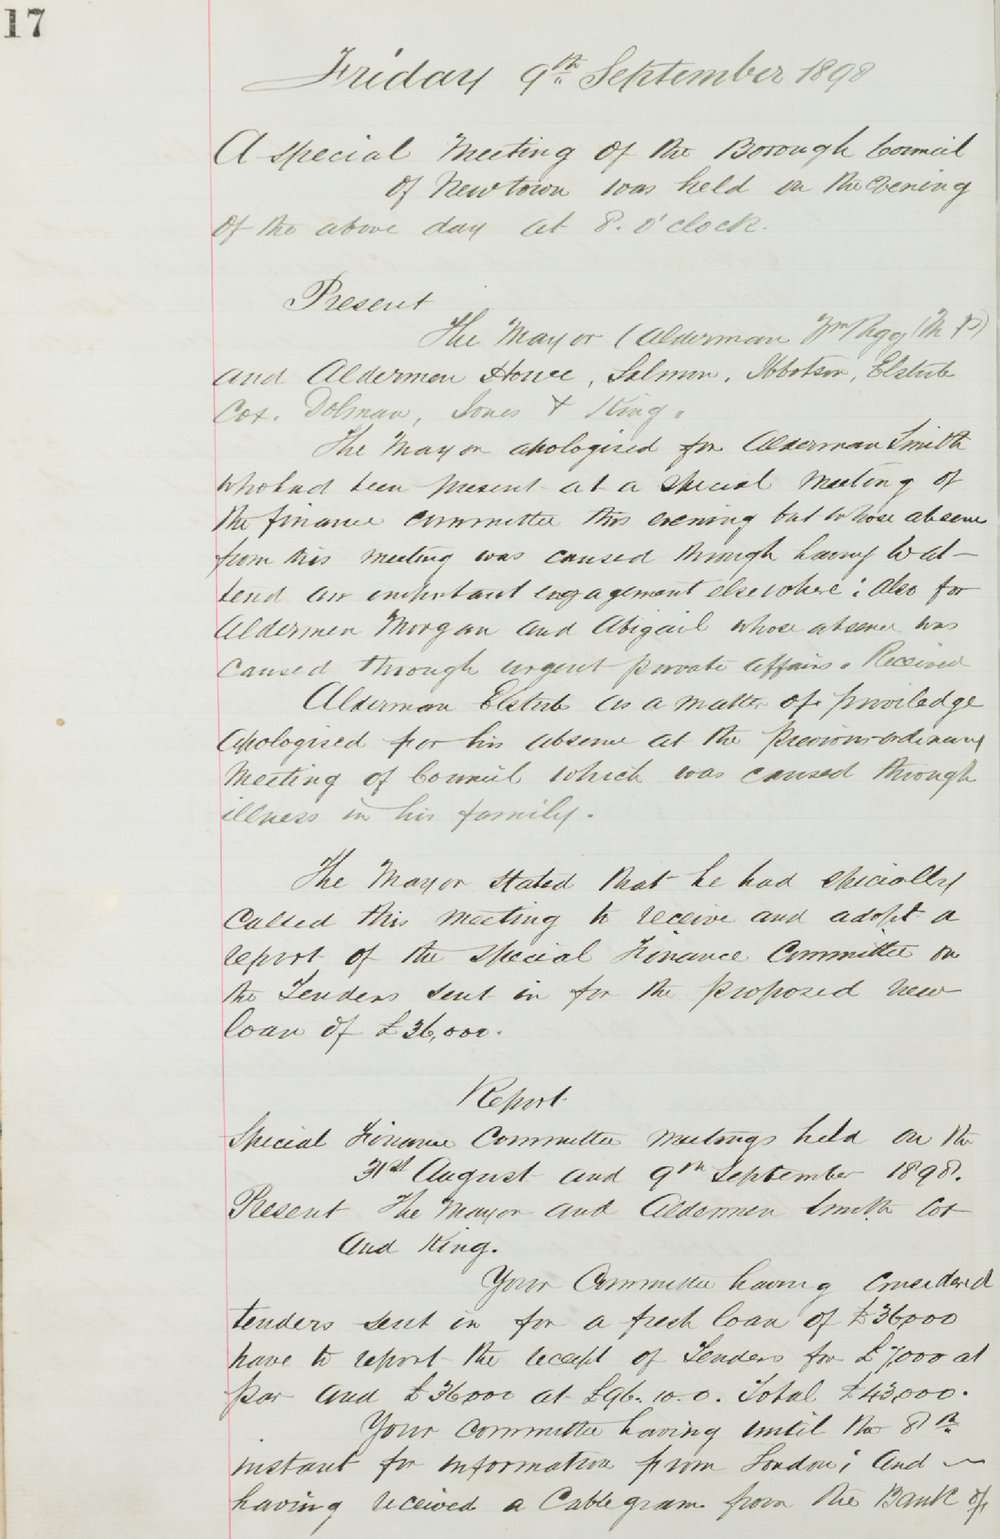 17
Friday 9th September 1898
A special Meeting of the Borough Council
of Newtown was held on the evening
of the above day at 8. o'clock.
Present
The Mayor (Alderman Wm Rigg (M P)
and Aldermen Howe, Salmon, Ibbotson, Elstub
Cox. Dolman, Jones & King.
The Mayor apologised for Alderman Smith
who had been present at a special Meeting of
the finance committee this evening but whose absence
from this meeting was caused through having to at-
tend an important engagement elsewhere; also for
Aldermen Morgan and Abigail whose absence was
caused through urgent private affairs. Received
Alderman Elstub as a matter of priviledge
apologised for his absence at the previous ordinary
Meeting of Council which was caused through
illness in his family.
The Mayor stated that he had specially
called this meeting to receive and adopt a
report of the special Finance Committee on
the Tenders sent in for the proposed new
loan of £36,000.
Report
Special Finance Committee meetings held on the
31st August and 9th September 1898.
Present The Mayor and Aldermen Smith Cox
and King.
Your Committee having considered
tenders sent in for a fresh loan of £36000
have to report the receipt of Tenders for £7,000 at
par and £36000 at £96.10.0. Total £43,000.
Your committee having until the 8th
instant for information from London; and
having received a Cablegram from the Bank of